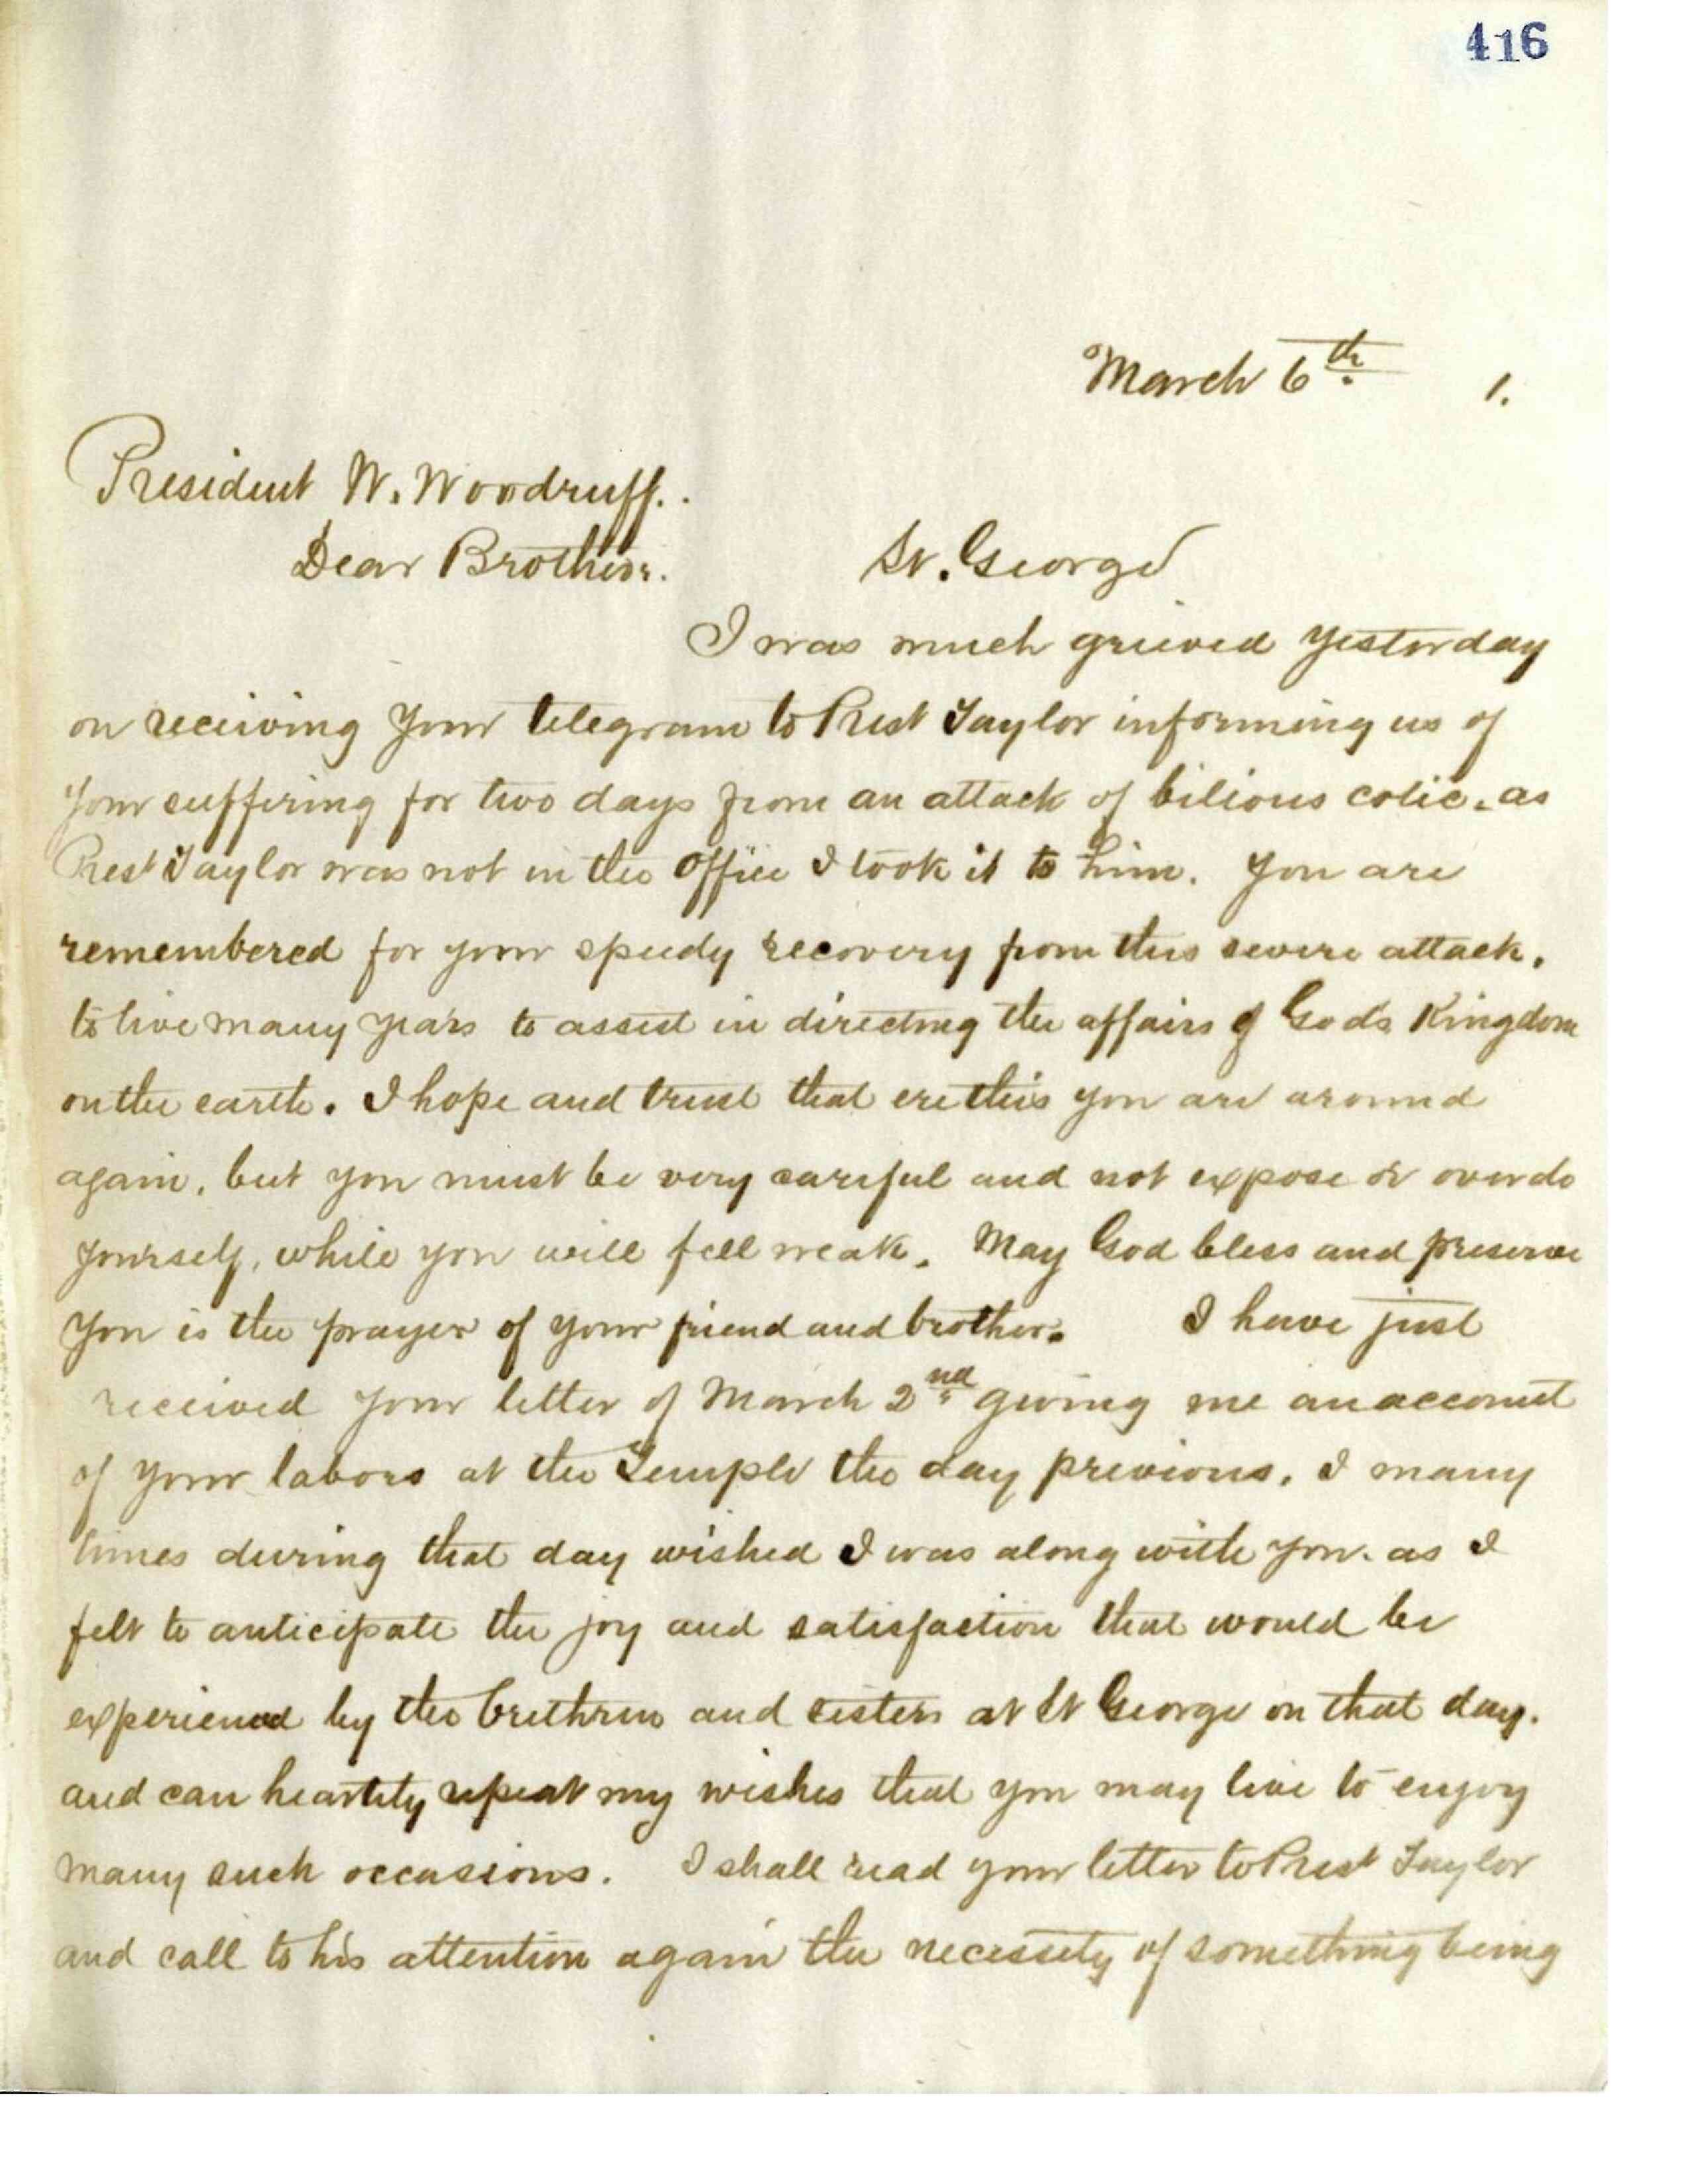 416
March 6th. 1.
President W. Woodruff..
Dear Brother. St. George
I was much grieved yesterday
on receiving your telegram to Prest Taylor informing us of
your suffering for two days from an attack of bilious colic, as
Prest Taylor was not in the office I took it to him. You are
remembered for your speedy recovery from this severe attack,
to live many years to assist in directing the affairs of Gods Kingdom
on the earth. I hope and trust that ere this you are around
again, but you must be very careful and not expose or over do
yourself, while you will fell weak. May God bless and preserve
you is the prayer of your friend and brother. I have just
received your letter of March 2nd giving me an account
of your labors at the Temple the day previous. I many
times during that day wished I was along with you. as I
felt to anticipate the joy and satisfaction that would be
experienced by the brethren and sisters at St George on that day.
and can heartily repeat my wishes that you may live to enjoy
many such occassions. I shall read your letter to Prest Taylor
and call to his attention again the necessity of something being